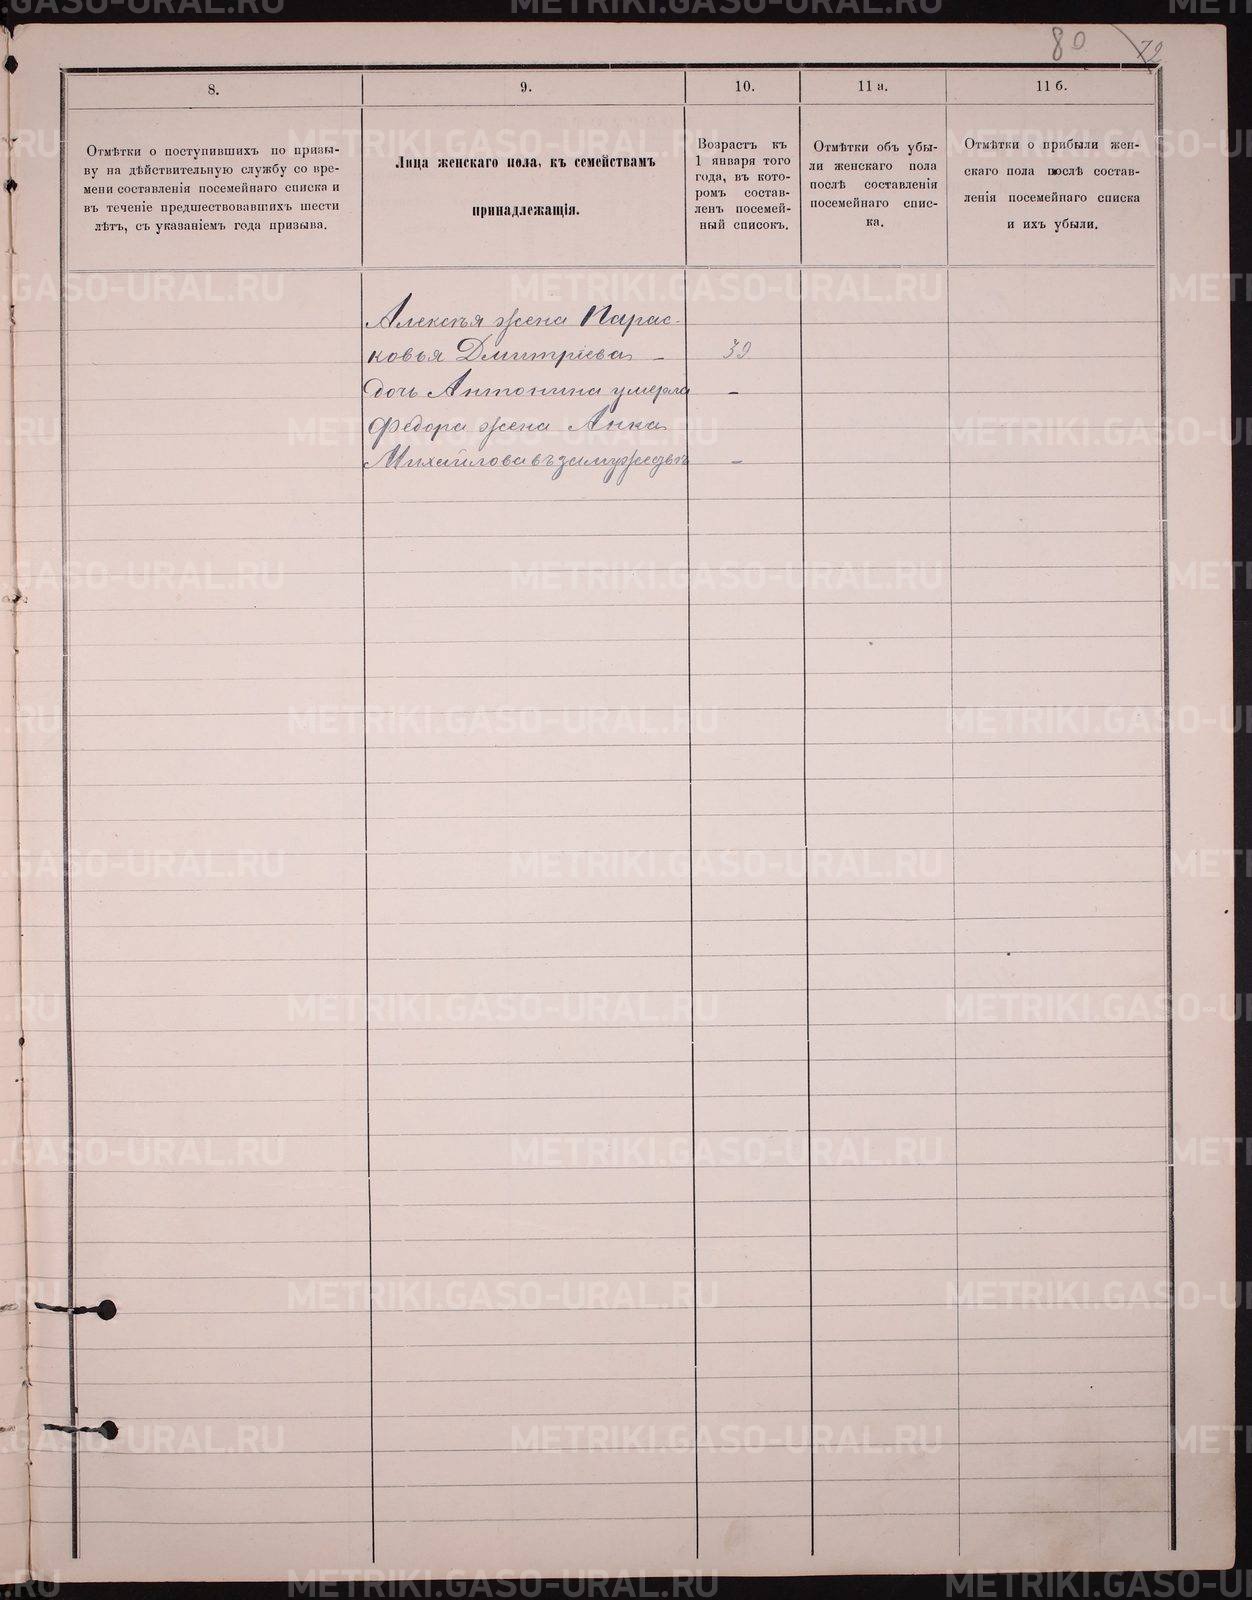 80 72
8.
Отмѣтки о поступившихъ по призы-
ву на дѣйствительную службу со вре-
мени составленія посемейнаго списка и
въ теченіе предшествовавшихъ шести
лѣтъ, съ указаніемъ года призыва.
9.
Лица женскаго пола, къ семействамъ
принадлежащія.
10.
Возрастъ къ
1 января того
года, въ кото-
ромъ состав-
ленъ посемей-
ный списокъ.
11 а.
Отмѣтки объ убы-
ли женскаго пола
послѣ составленія
посемейнаго спис-
ка.
11 б.
Отмѣтки о прибыли жен-
скаго пола послѣ состав-
ленія посемейнаго списка
и ихъ убыли.
Алексѣя жена Парас-
ковья Дмитріева – 39
дочь Антонина умерла –
Федора жена Анна
Михайлова въ замужествѣ –
METRIKI.GASO-URAL.RU